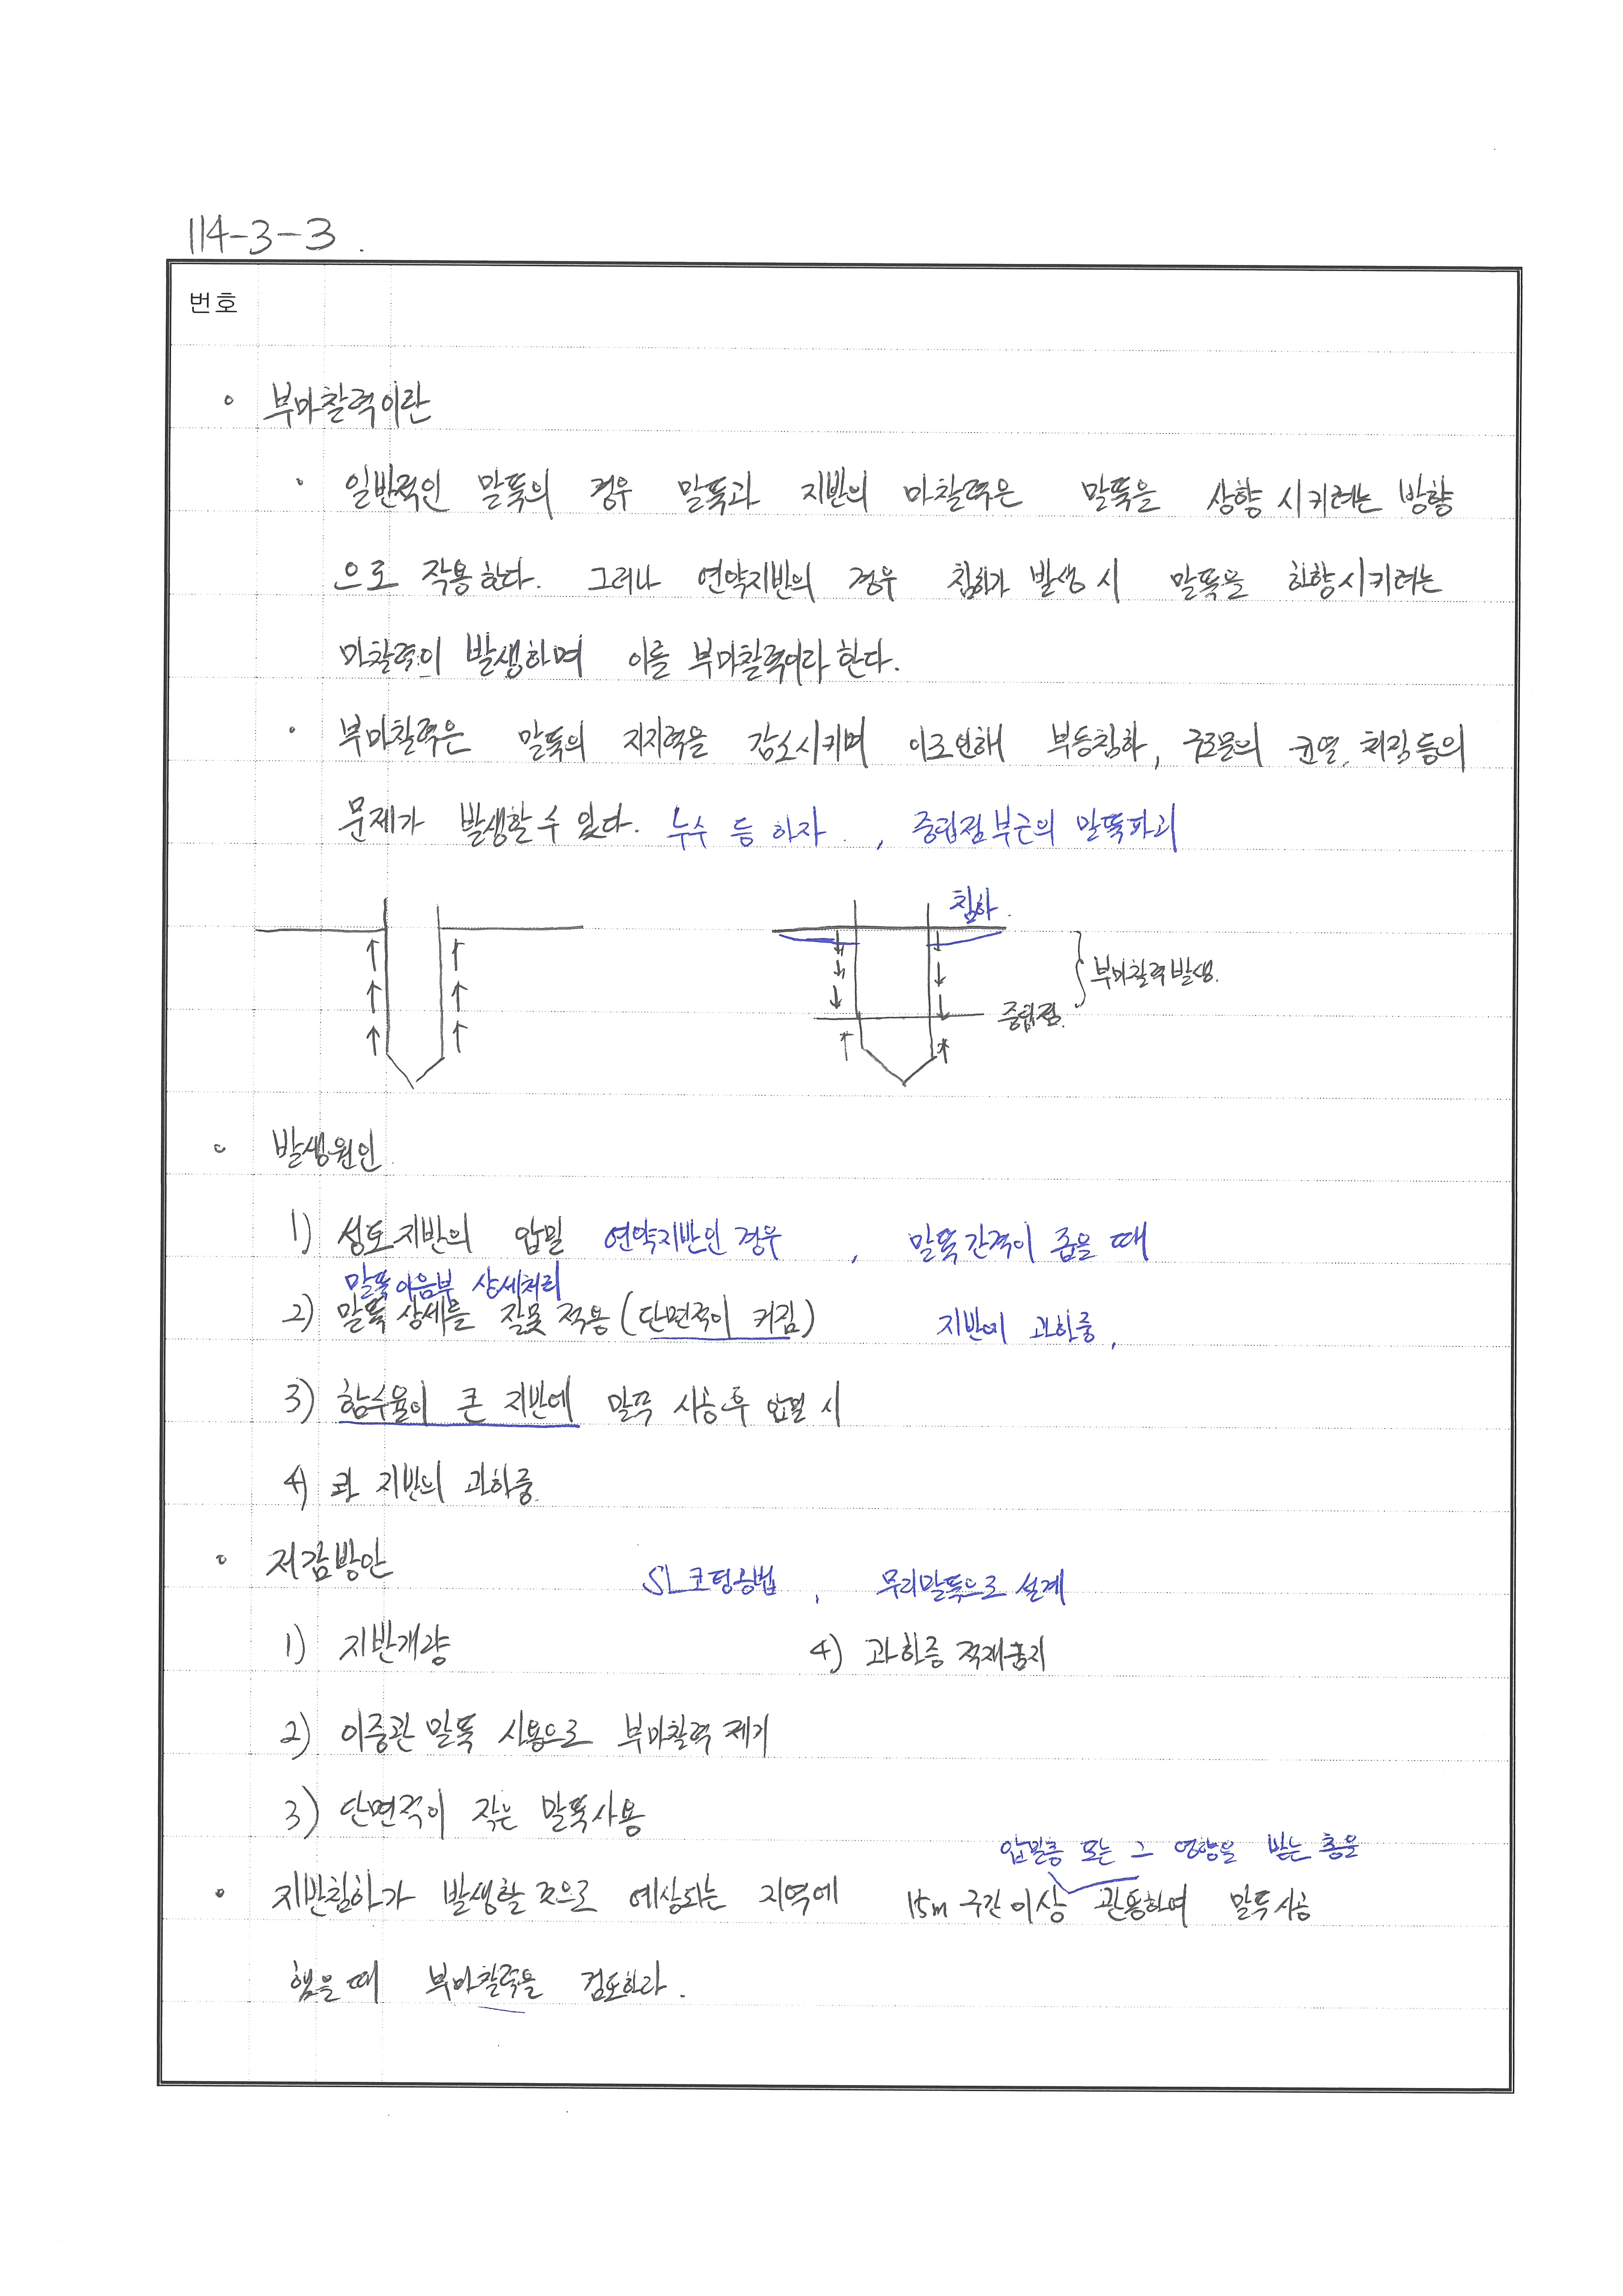 114-3-3.
번호
◦ 부마찰력이란
· 일반적인 말뚝의 경우 말뚝과 지반의 마찰력은 말뚝을 상향시키려는 방향
으로 작용한다. 그러나 연약지반의 경우 침하가 발생시 말뚝을 하향시키려는
마찰력이 발생하며 이를 부마찰력이라 한다.
· 부마찰력은 말뚝의 지지력을 감소시키며 이로인해 부등침하, 구조물의 균열, 처짐등의
문제가 발생할 수 있다. 누수 등 하자, 중립점부근의 말뚝파괴
침하.
부마찰력발생.
중립점.
◦ 발생원인
1) 성토지반의 압밀 연약지반인 경우, 말뚝간격이 좁을 때
말뚝이음부 상세처리
2) 말뚝 상세를 잘못 적용 (단면적이 커짐) 지반에 과하중,
3) 함수율이 큰 지반에 말뚝 시공후 압밀 시
4) 지반의 과하중.
◦ 저감방안
SL코팅공법, 무리말뚝으로 설계
1) 지반개량 4) 과하중 적재금지
2) 이중관 말뚝 사용으로 부마찰력 제거
3) 단면적이 작은 말뚝사용
압밀층 또는 그 영향을 받는 층을
◦ 지반침하가 발생할 것으로 예상되는 지역에 15m 구간 이상 관통하여 말뚝시공
했을때 부마찰력을 검토하라.